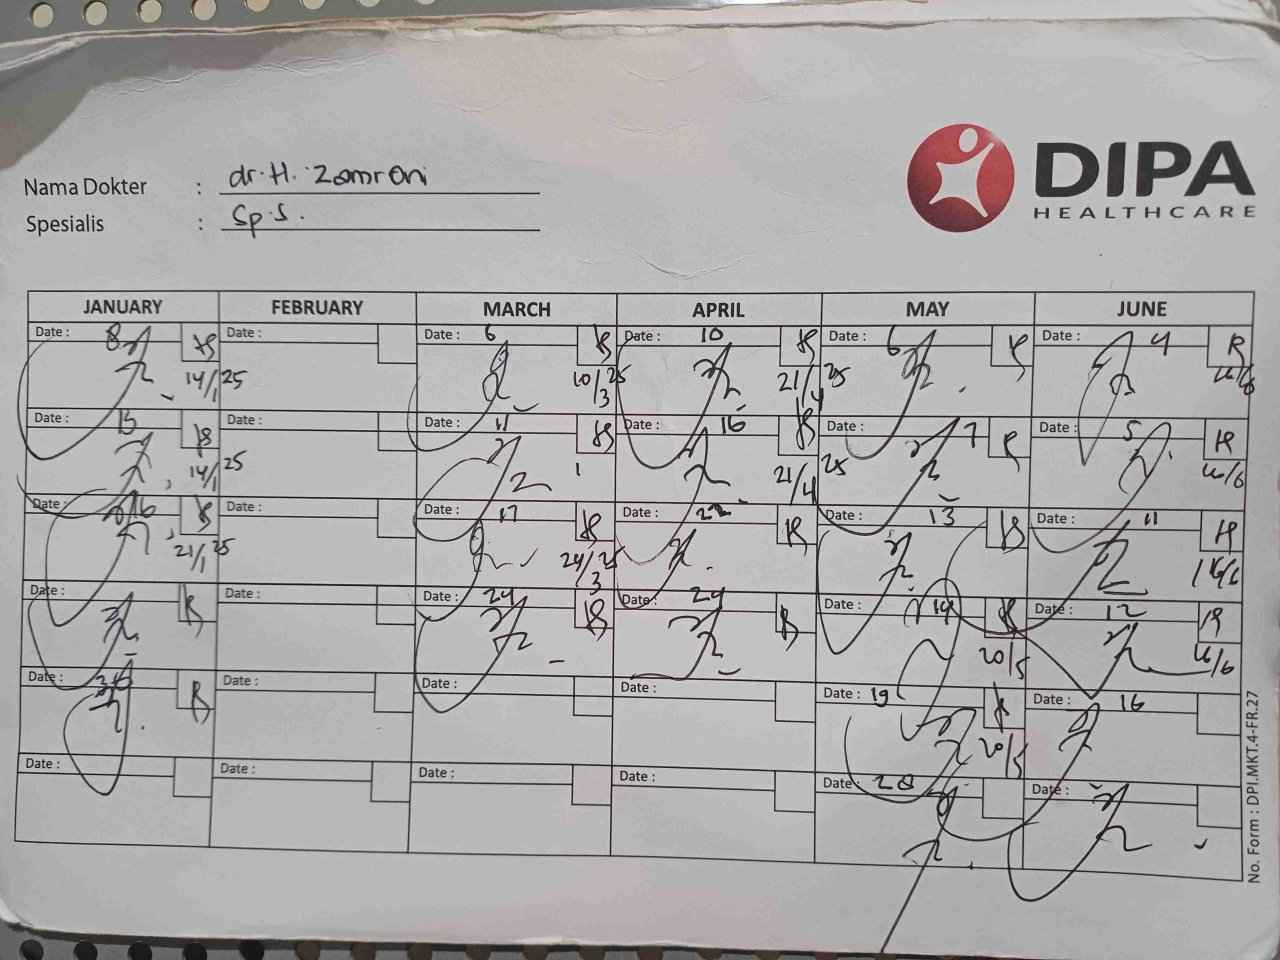 DIPA
HEALTHCARE
Nama Dokter : dr. H. Zamroni
Spesialis : Sp.S.
JANUARY FEBRUARY MARCH APRIL MAY JUNE
Date : 8 Date : Date : 6 Date : 10 Date : 6 Date : 4
14/1 25 10/3 25 21/4 25
Date : 15 Date : Date : 11 Date : 16 Date : 7 Date : 5
14/1 25 21/4 25 16/6
Date : 16 Date : Date : 17 Date : 22 Date : 13 Date : 11
21/1 25 24/3 25 16/6
Date : Date : Date : 24 Date : 24 Date : 14 Date : 12
20/5 16/6
Date : 30 Date : Date : Date : Date : 19 Date : 16
20/5
Date : Date : Date : Date : Date : 28 Date :
No. Form : DPI.MKT.4-FR.27